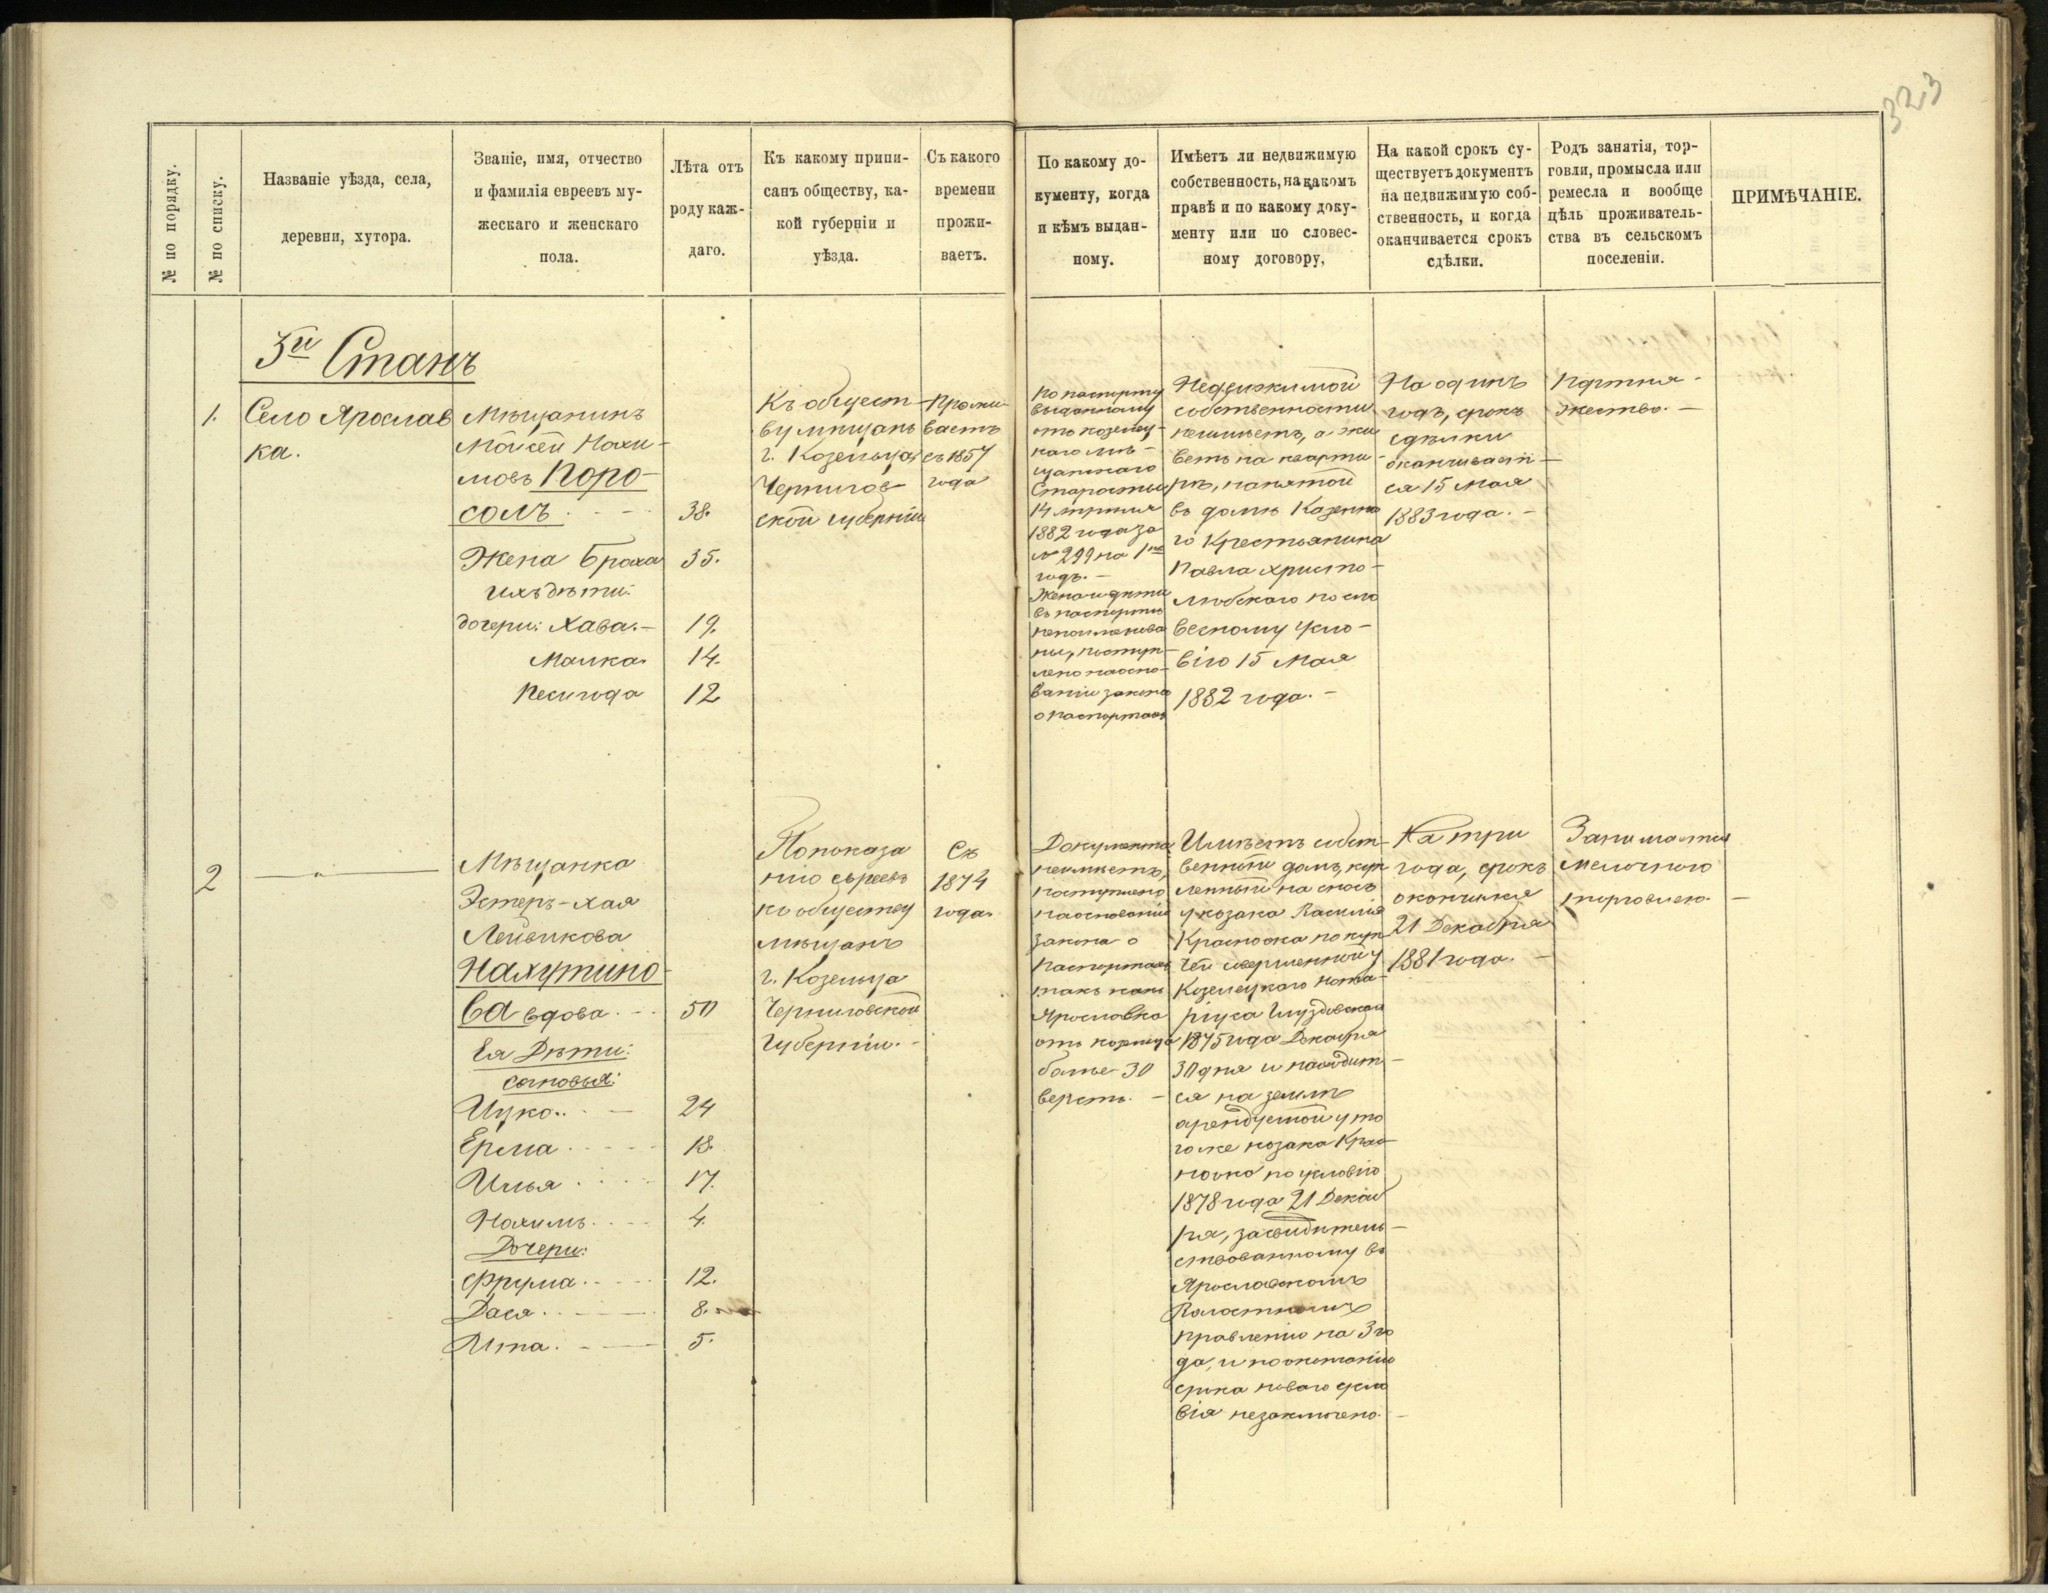 323
№ по порядку.
№ по списку.
Названіе уѣзда, села,
деревни, хутора.
Званіе, имя, отчество
и фамилія евреевъ му-
жескаго и женскаго
пола.
Лѣта отъ
роду каж-
даго.
Къ какому припи-
санъ обществу, ка-
кой губерніи и
уѣзда.
Съ какого
времени
прожи-
ваетъ.
По какому до-
кументу, когда
и кѣмъ выдан-
ному.
Имѣетъ ли недвижимую
собственность, на какомъ
правѣ и по какому доку-
менту или по словес-
ному договору,
На какой срокъ су-
ществуетъ документъ
на недвижимую соб-
ственность, и когда
оканчивается срокъ
сдѣлки.
Родъ занятія, тор-
говли, промысла или
ремесла и вообще
цѣль проживатель-
ства въ сельскомъ
поселеніи.
ПРИМѢЧАНІЕ.
3й Станъ
1.
Село Ярослав
ка.
Мѣщанинъ
Мойсей Нохи-
мовъ Поро-
солъ
38.
Жена Броха
35.
ихъ дѣти:
дочери: Хава.
19.
Малка
14.
Песигода
12
Къ общест-
ву мѣщанъ
г. Козельца
Чернигов-
ской губерніи
Прожи-
ваетъ
съ 1857
года
По паспорту
выданному
отъ козелец-
каго мѣ-
щанскаго
Старосты
1882 года за
№ 299 на 1нъ
годъ.
Жена и дѣти
въ паспортѣ
непоименова
ны, поступ-
лено на осно-
ваніи закона
о паспортахъ
Недвижимой
собственности
неимѣетъ, а жи
ветъ на кварти-
рѣ, нанятой
въ домѣ Казенна
го Крестьянина
Павла Христо-
любскаго по сло
весному усло-
вію 15 Мая
1882 года.
На одинъ
годъ, срокъ
сдѣлки
оканчивает-
ся 15 Мая
1883 года.
Портня-
жество.
2
Мѣщанка
Эстеръ-Хая
Лейвикова
Нахутино-
ва вдова
50
Ея Дѣти:
сыновья:
Ицко
24
Ерма
18.
Илья
17.
Нохимъ
4.
Дочери:
Фрума
12.
Дася
8.
Ита
5.
По показа
нію евреевъ
къ обществу
мѣщанъ
г. Козельца
Черниговской
Губерніи.
Съ
1874
года.
Документа
неимѣетъ,
поступлено
на основаніи
закона о
паспортахъ
такъ какъ
Ярославка
отъ Козельца
болѣе 30
верстъ.
Имѣетъ собст-
венный домъ, куп
ленный на сносъ
у козака Василія
Красноока по куп
чей совершенной у
Козелецкаго Нота-
ріуса
1875 года Декабря
30 дня и находит-
ся на землѣ
арендуемой у то
го же козака Крас-
ноока по условію
1878 года 21 Декаб
ря, засвидѣтель-
ствованному въ
Ярославскомъ
Волостномъ
правленіи на 3 го
да, и по окончаніи
срока новаго усло
вія незаключено.
На три
года, срокъ
окончился
21 Декабря
1881 года.
Занимается
мелочною
торговлею.